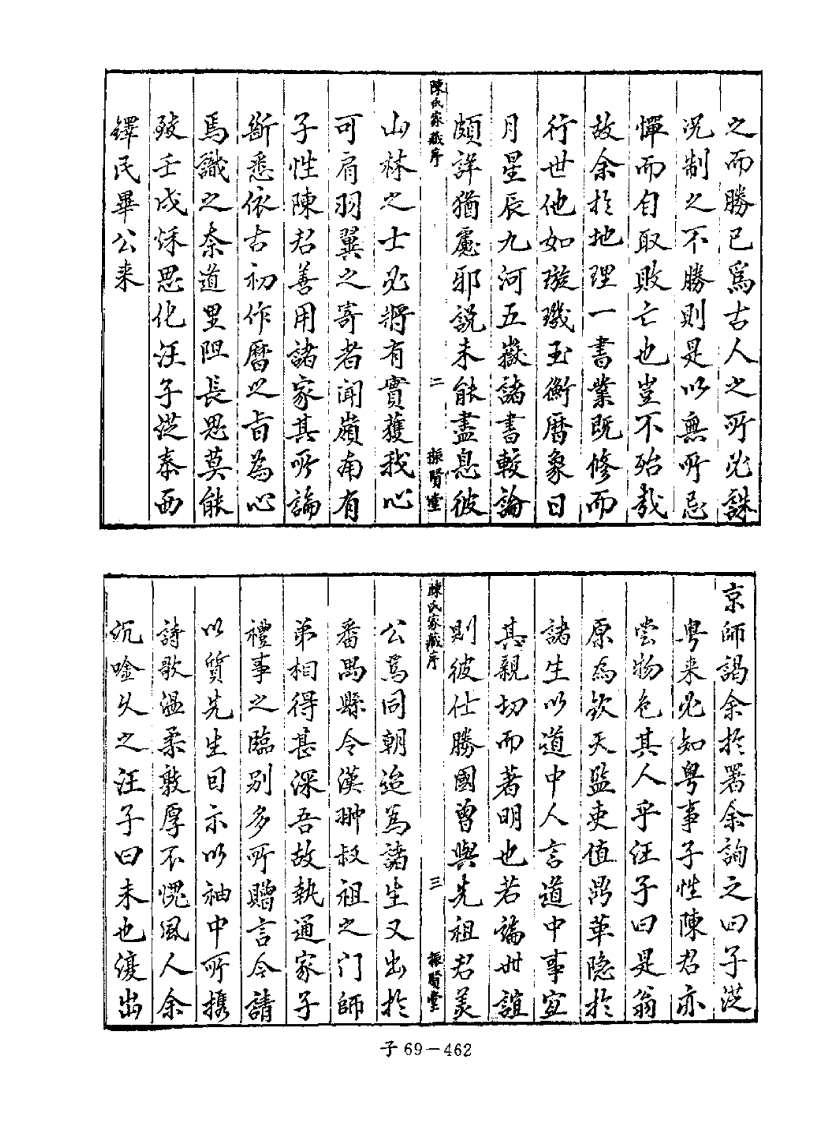 之而勝已爲古人之所必誅
况制之不勝則是以無所忌
憚而自取敗亡也豈不殆哉
故余於地理一書業既修而
行世他如璇璣玉衡曆象日
月星辰九河五嶽諸書較論
頗詳猶慮邪説未能盡息彼
陳氏家藏序 二 振賢堂
山林之士必將有實獲我心
可肩羽翼之寄者聞嶺南有
子性陳君善用諸家其所論
斷悉依古初作曆之旨為心
焉識之奈道里阻長思莫能
致壬戌秋思化汪子從泰西
鐸民畢公来
京師謁余於署余詢之曰子從
粤来必知粤事子性陳君亦
嘗物色其人乎汪子曰是翁
原為欽天監吏值鼎革隐於
諸生以道中人言道中事宜
其親切而著明也若論世誼
則彼仕勝國曾與先祖君美
陳氏家藏序 三 振賢堂
公爲同朝迨為諸生又出於
番禺縣令漢翀叔祖之门師
弟相得甚深吾故執通家子
禮事之臨别多所贈言今請
以質先生因示以袖中所攜
詩歌温柔敦厚不愧風人余
沉唫久之汪子曰未也復出
子 69－462